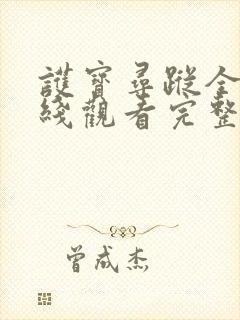 護寶尋蹤全
綫觀看完整
曾成杰